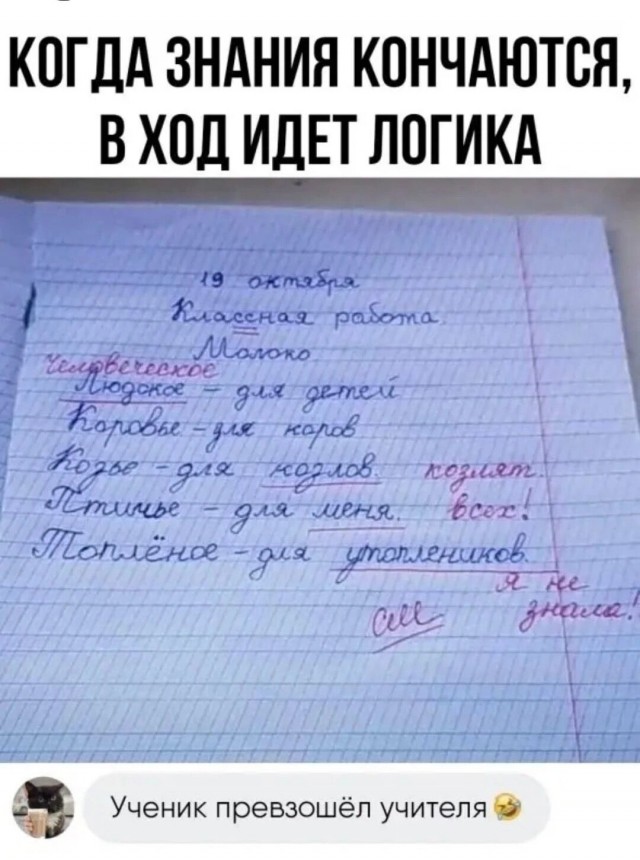 КОГДА ЗНАНИЯ КОНЧАЮТСЯ,
В ХОД ИДЕТ ЛОГИКА
19 октября
Классная работа.
Молоко
Человеческое
Людское – для детей
Коровье – для коров
Козье – для козлов. козлят.
Птичье – для меня. всех!
Топлёное – для утоплеников.
я не
см знала!
Ученик превзошёл учителя 🤣